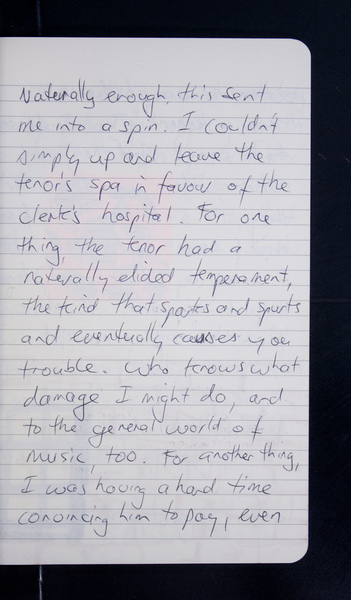 Naturally enough, this sent
me into a spin. I couldn't
simply up and leave the
tenor's spa in favour of the
clerk's hospital. For one
thing, the tenor had a
naturally elided temperament,
the kind that sparks and spurts
and eventually causes you
trouble. Who knows what
damage I might do, and
to the general world of
music, too. For another thing,
I was having a hard time
convincing him to pay, even